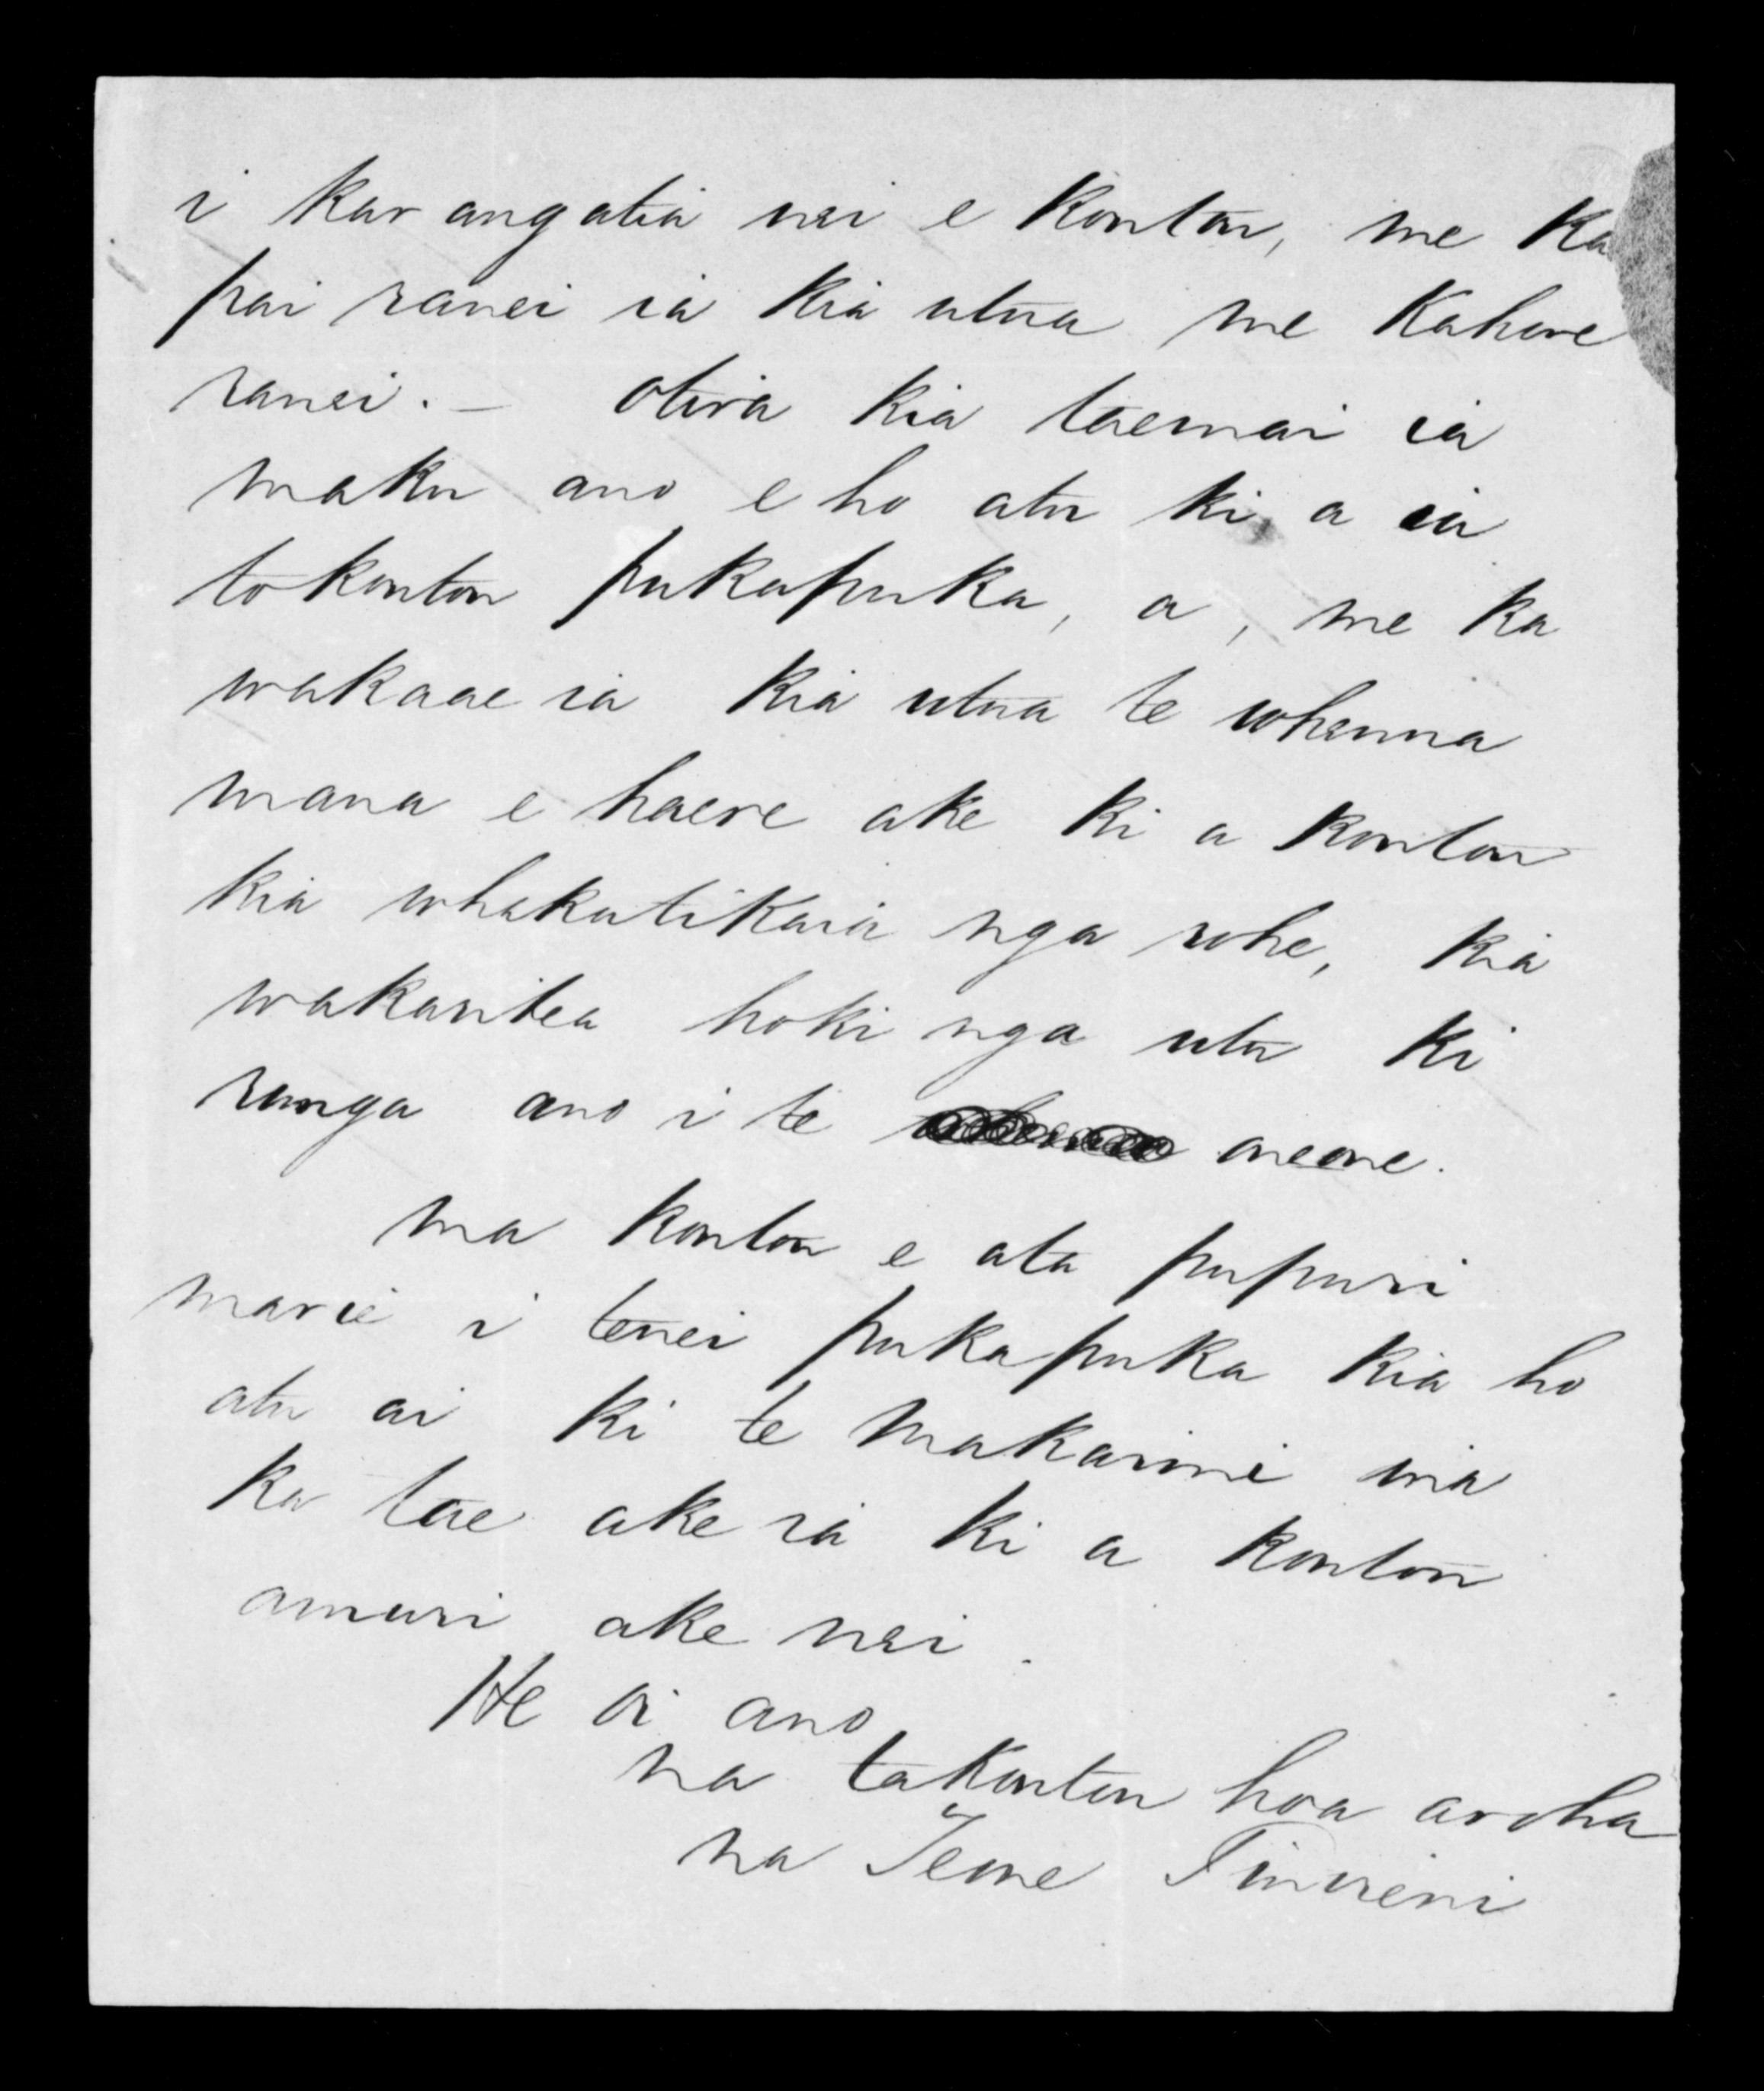 i karangatia nei e koutou, me ka
pai ranei ia kia utua me Kahore
ranei. — Otira kia taemai ia
maku ano e ho atu ki a ia
to koutou pukapuka, a, me ka
wakaae ia kia utua te whenua
mana e haere ake ki a koutou
kia whakatikaia nga rohe, kia
wakaritea hoki nga utu ki
runga ano i te oneone.
ma koutou e ata pupuri
marie i tenei pukapuka kia ho
atu ai ki te Makarini ina
ka tae ake ia ki a koutou
amuri ake nei.
He oi ano
na ta koutou hoa aroha
na